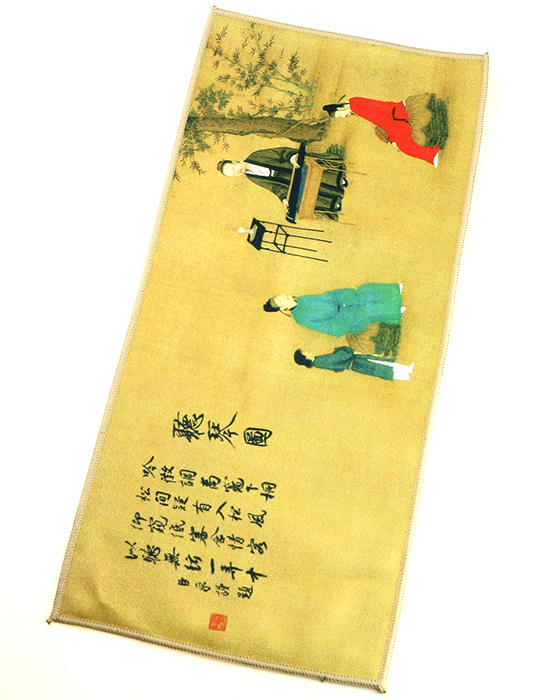 聽琴圖
吟徵調商竈下桐
松間疑有入松風
仰窺低審含情客
以聽無絃一弄中
臣京謹題